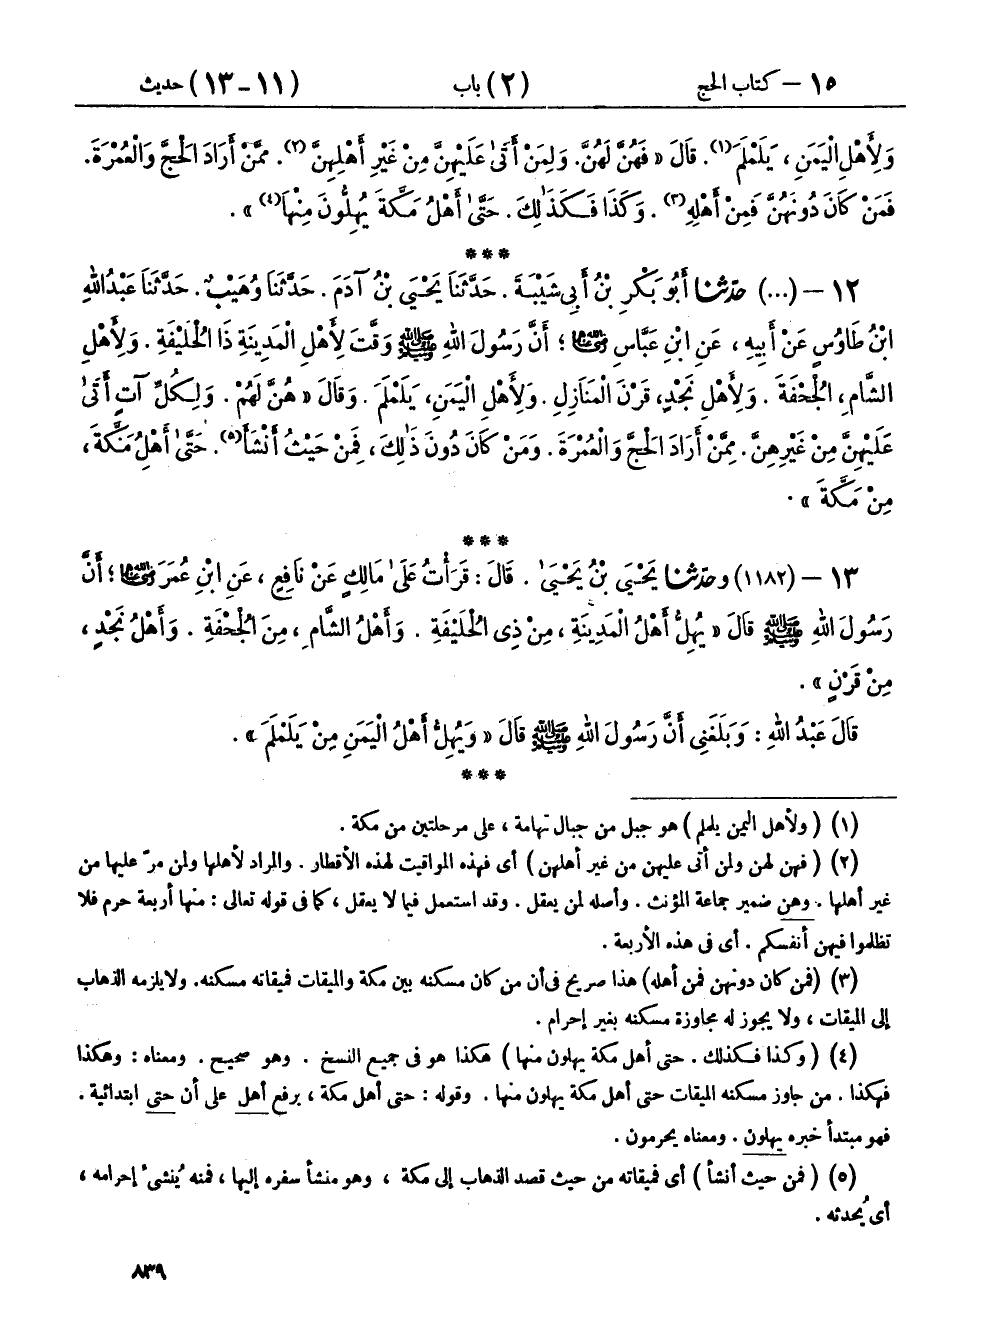 ١٥ – كتاب الحج (٢) باب (١١-١٣) حديث
وَلِأَهْلِ الْيَمَنِ ، يَلَمْلَمَ(١). قَالَ « فَهُنَّ لَهُنَّ. وَلِمَنْ أَتَىٰ عَلَيْهِنَّ مِنْ غَيْرِ أَهْلِهِنَّ (٢). مِمَّنْ أَرَادَ الْحَجَّ وَالْعُمْرَةَ.
فَمَنْ كَانَ دُونَهُنَّ فَمِنْ أَهْلِهِ(٣) . وَكَذَا فَكَذَٰلِكَ . حَتَّىٰ أَهْلُ مَكَّةَ يُهِلُّونَ مِنْهَا(٤) » .
***
١٢ – (...) حدثنا أَبُو بَكْرِ بْنُ أَبِي شَيْبَةَ . حَدَّثَنَا يَحْيَى بْنُ آدَمَ . حَدَّثَنَا وُهَيْبٌ . حَدَّثَنَا عَبْدُ اللهِ
ابْنُ طَاوُسٍ عَنْ أَبِيهِ ، عَنِ ابْنِ عَبَّاسٍ رضي الله عنهما ؛ أَنَّ رَسُولَ اللهِ ﷺ وَقَّتَ لِأَهْلِ الْمَدِينَةِ ذَا الْحُلَيْفَةِ . وَلِأَهْلِ
الشَّامِ، الْجُحْفَةَ . وَلِأَهْلِ نَجْدٍ، قَرْنَ الْمَنَازِلِ . وَلِأَهْلِ الْيَمَنِ، يَلَمْلَمَ . وَقَالَ « هُنَّ لَهُمْ . وَلِكُلِّ آتٍ أَتَىٰ
عَلَيْهِنَّ مِنْ غَيْرِهِنَّ . مِمَّنْ أَرَادَ الْحَجَّ وَالْعُمْرَةَ . وَمَنْ كَانَ دُونَ ذَٰلِكَ ، فَمِنْ حَيْثُ أَنْشَأَ(٥) . حَتَّىٰ أَهْلُ مَكَّةَ ،
مِنْ مَكَّةَ » .
***
١٣ – (١١٨٢) وحدثنا يَحْيَى بْنُ يَحْيَىٰ . قَالَ : قَرَأْتُ عَلَىٰ مَالِكٍ عَنْ نَافِعٍ ، عَنِ ابْنِ عُمَرَ رضي الله عنهما ؛ أَنَّ
رَسُولَ اللهِ ﷺ قَالَ « يُهِلُّ أَهْلُ الْمَدِينَةِ ، مِنْ ذِي الْحُلَيْفَةِ . وَأَهْلُ الشَّامِ ، مِنَ الْجُحْفَةِ . وَأَهْلُ نَجْدٍ ،
مِنْ قَرْنٍ » .
قَالَ عَبْدُ اللهِ : وَبَلَغَنِي أَنَّ رَسُولَ اللهِ ﷺ قَالَ « وَيُهِلُّ أَهْلُ الْيَمَنِ مِنْ يَلَمْلَمَ » .
***
(١) ( ولأهل اليمن يلملم ) هو جبل من جبال تهامة ، على مرحلتين من مكة .
(٢) ( فهن لهن ولمن أتى عليهن من غير أهلهن ) أى فهذه المواقيت لهذه الأقطار . والمراد لأهلها ولمن مرّ عليها من
غير أهلها . وهن ضمير جماعة المؤنث . وأصله لمن يعقل . وقد استعمل فيما لا يعقل ، كما فى قوله تعالى : منها أربعة حرم فلا
تظلموا فيهن أنفسكم . أى فى هذه الأربعة .
(٣) (فمن كان دونهن فمن أهله) هذا صريح فى أن من كان مسكنه بين مكة والميقات فميقاته مسكنه. ولا يلزمه الذهاب
إلى الميقات ، ولا يجوز له مجاوزة مسكنه بغير إحرام .
(٤) ( وكذا فكذلك . حتى أهل مكة يهلون منها ) هكذا هو فى جميع النسخ . وهو صحيح . ومعناه : وهكذا
فهكذا . من جاوز مسكنه الميقات حتى أهل مكة يهلون منها . وقوله : حتى أهل مكة ، برفع أهل على أن حتى ابتدائية .
فهو مبتدأ خبره يهلون . ومعناه يحرمون .
(٥) ( فمن حيث أنشأ ) أى فميقاته من حيث قصد الذهاب إلى مكة ، وهو منشأ سفره إليها ، فمنه يُنشئ إحرامه ،
أى يُحدثه .
٨٣٩